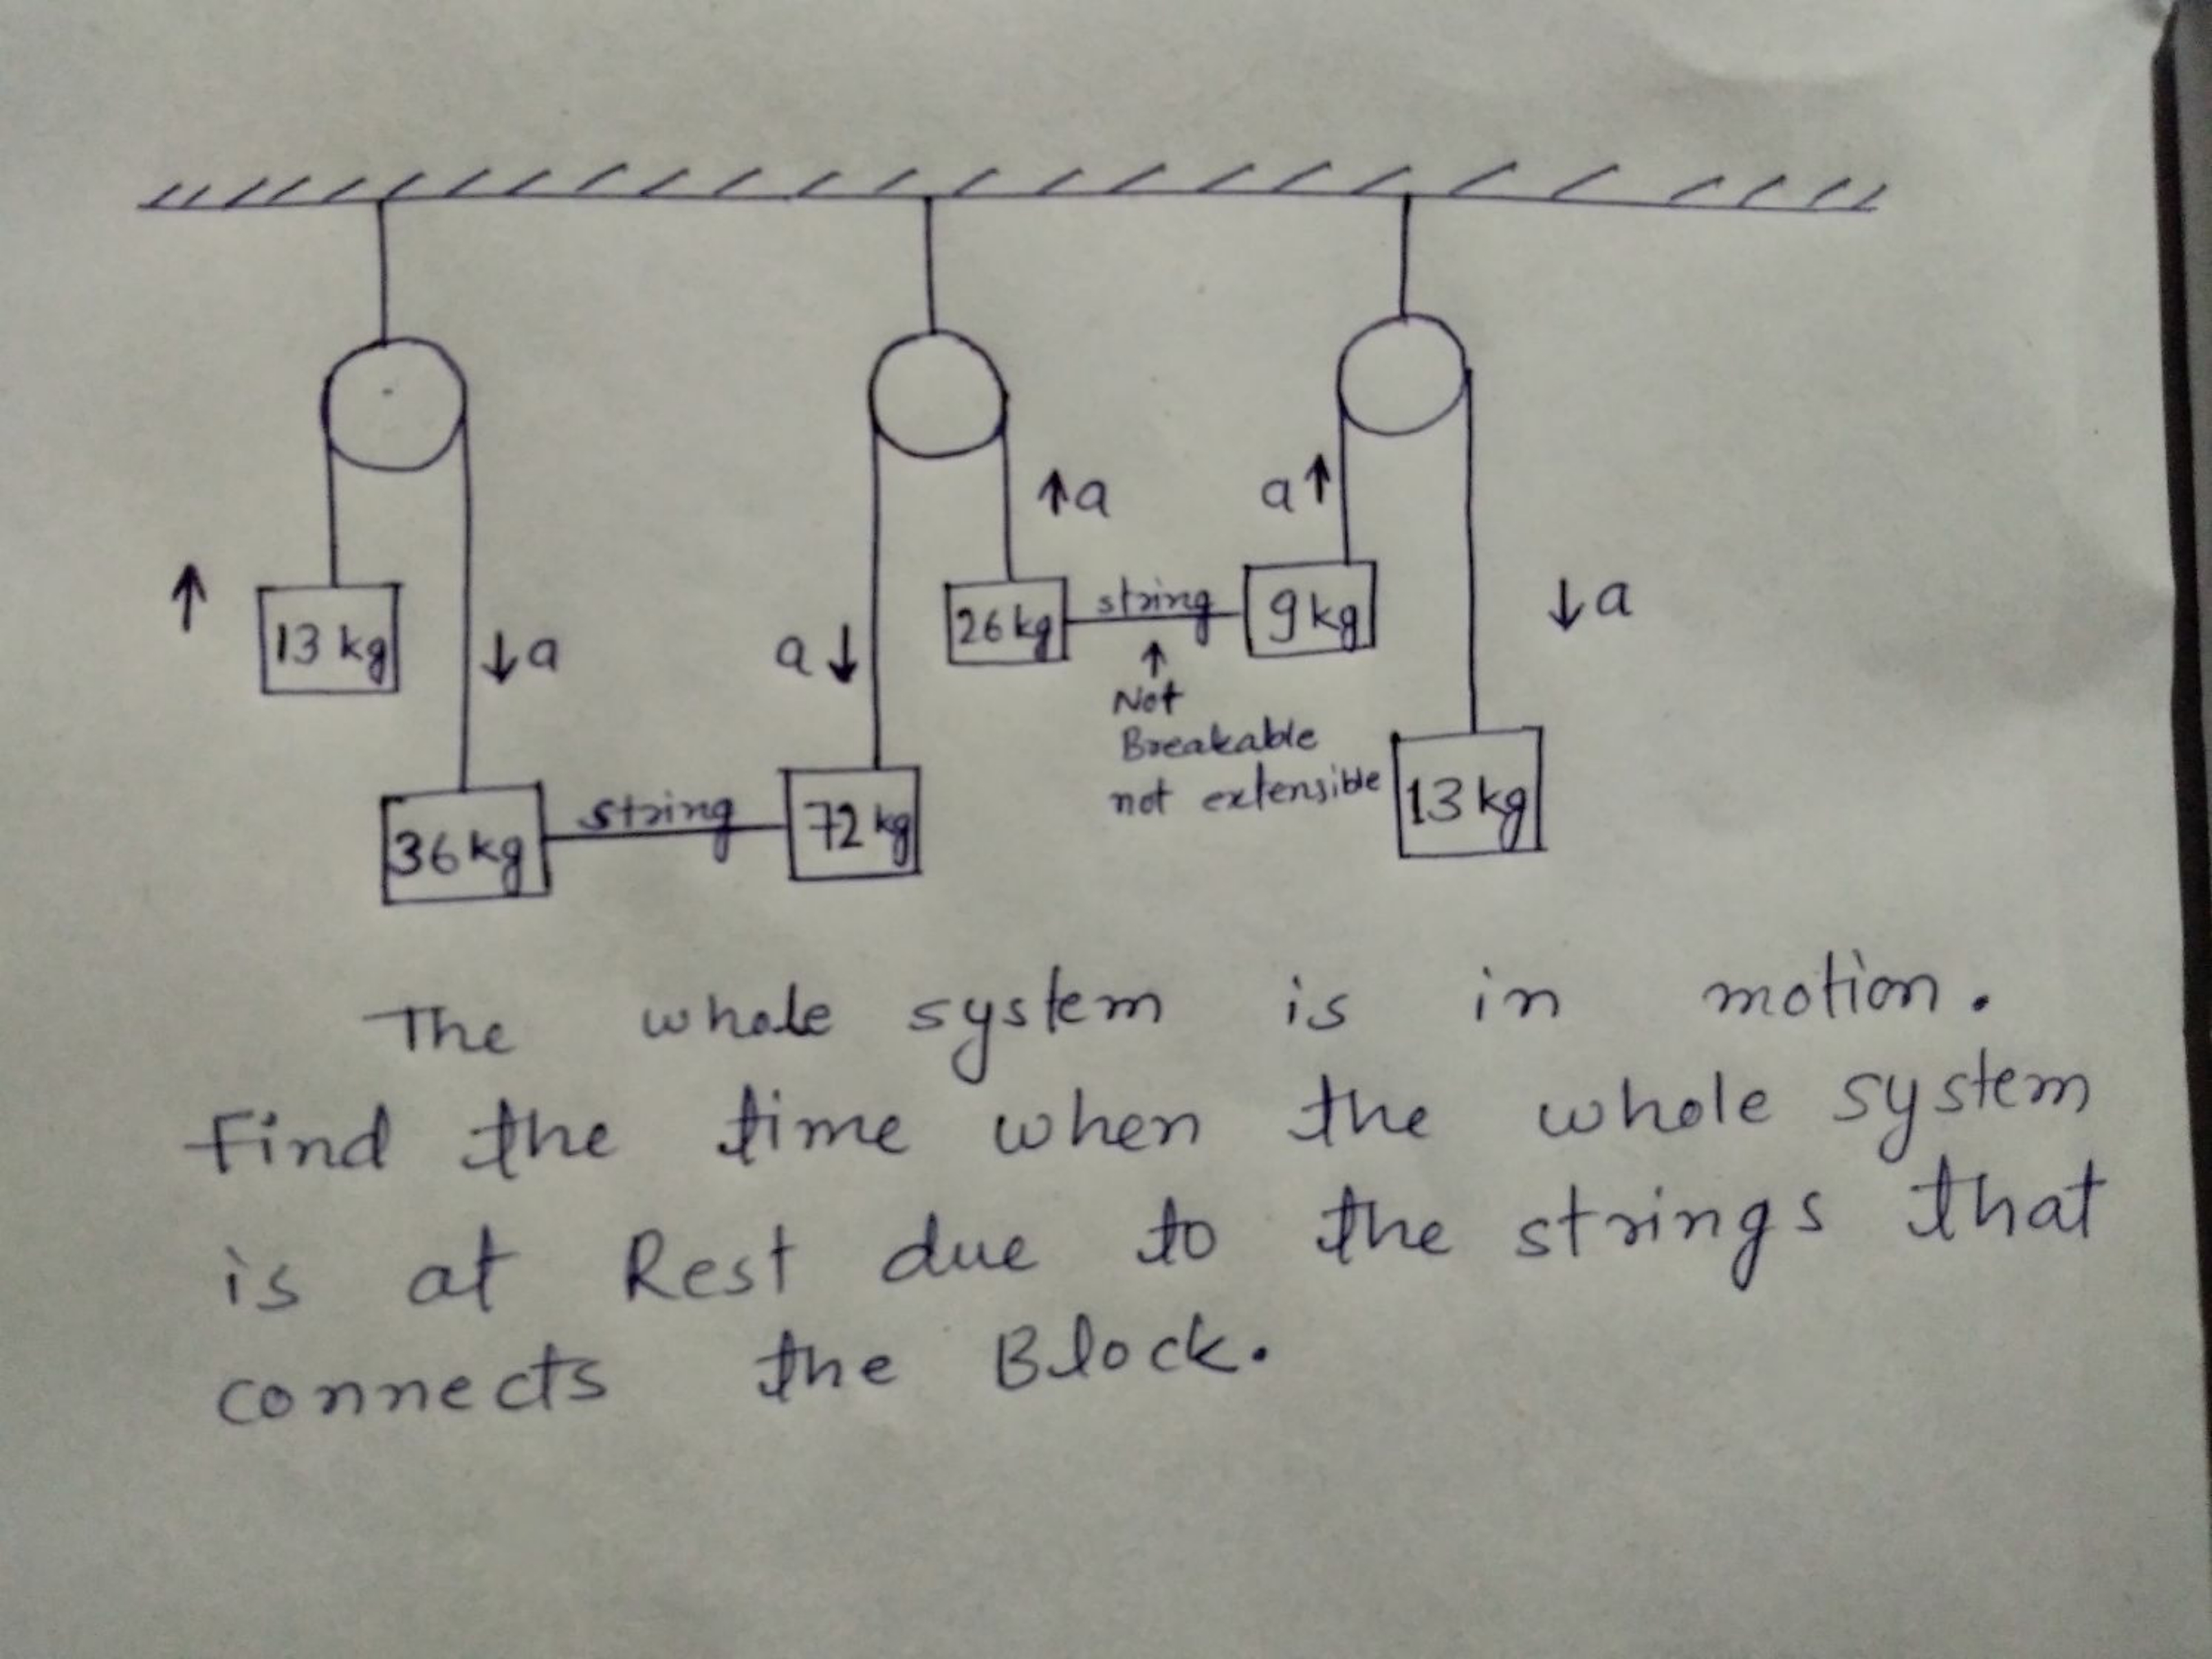 ↑a
a↑
13 kg
↓a
a↓
26 kg
string
9 kg
↓a
Not
Breakable
not extensible
36 kg
string
72 kg
13 kg
The whole system is in motion.
Find the time when the whole system
is at Rest due to the strings that
connects the Block.